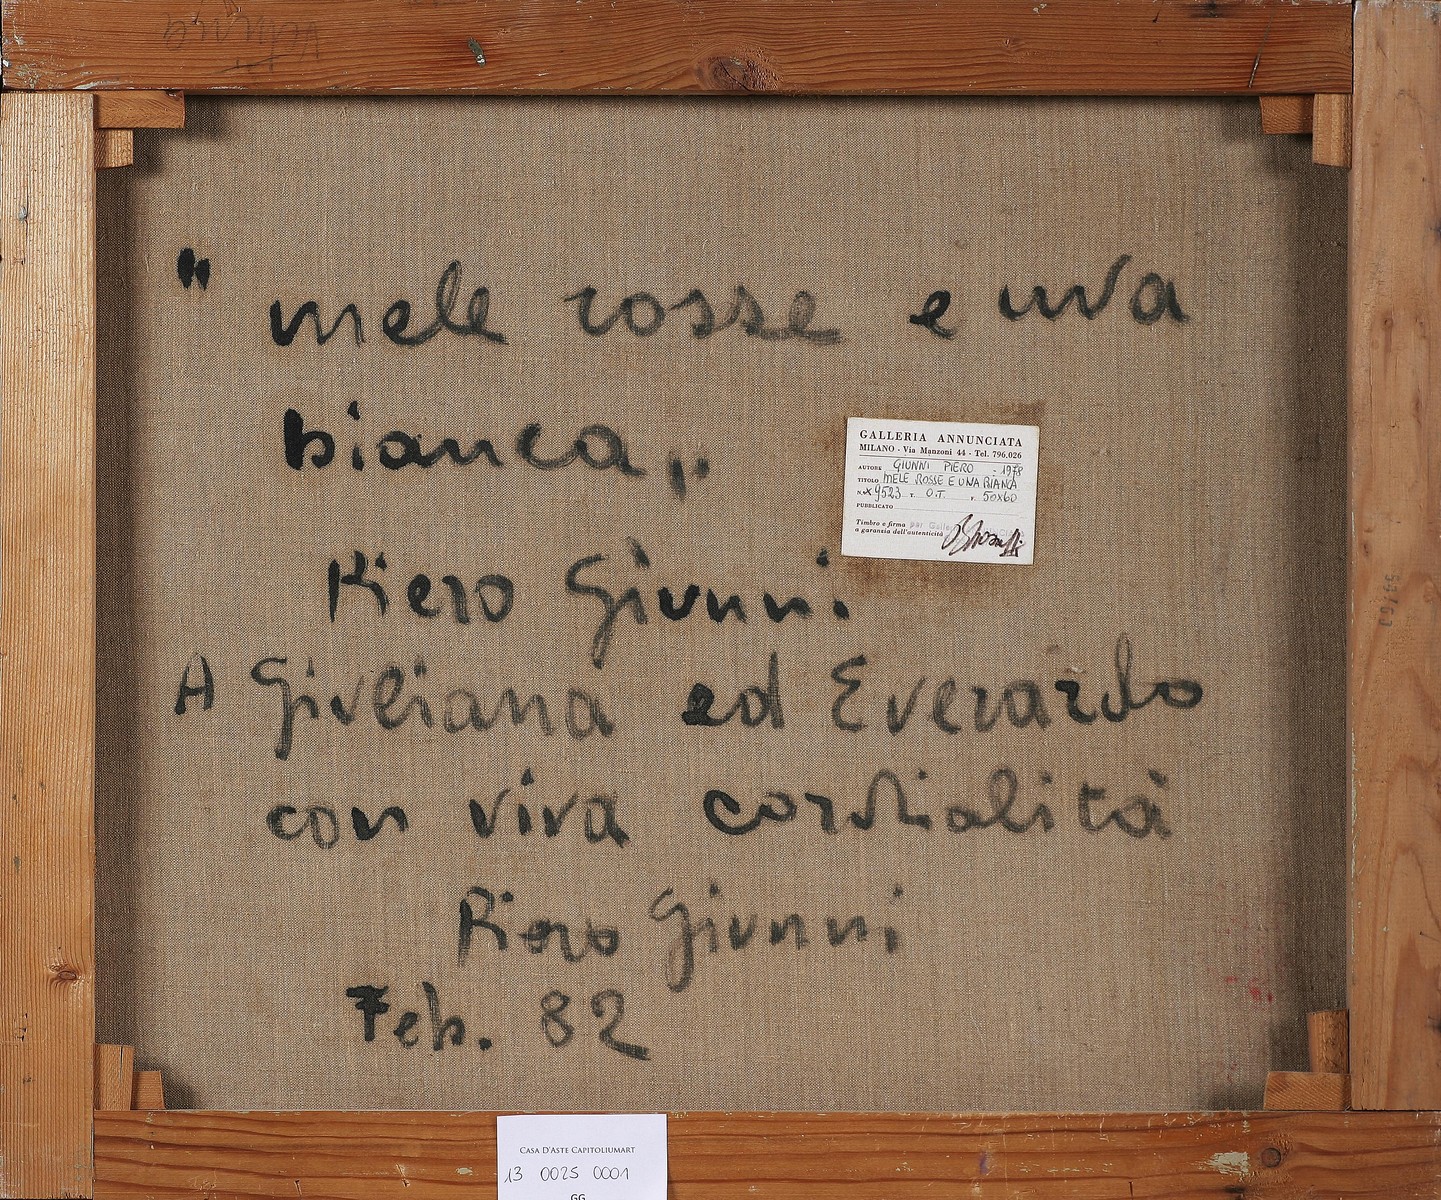 " mele rosse e uva
bianca „
GALLERIA ANNUNCIATA
MILANO - Via Manzoni 44 - Tel. 796.026
AUTORE GIUNNI PIERO - 1978
TITOLO MELE ROSSE E UVA BIANCA
N. x 9523 T. O.T. F. 50x60
PUBBLICATO
Timbro e firma per Galleria
a garanzia dell'autenticità
Piero Giunni
A Giuliana ed Everardo
con viva cordialità
Piero Giunni
Feb. 82
CASA D'ASTE CAPITOLIUMART
13 0025 0001
GG